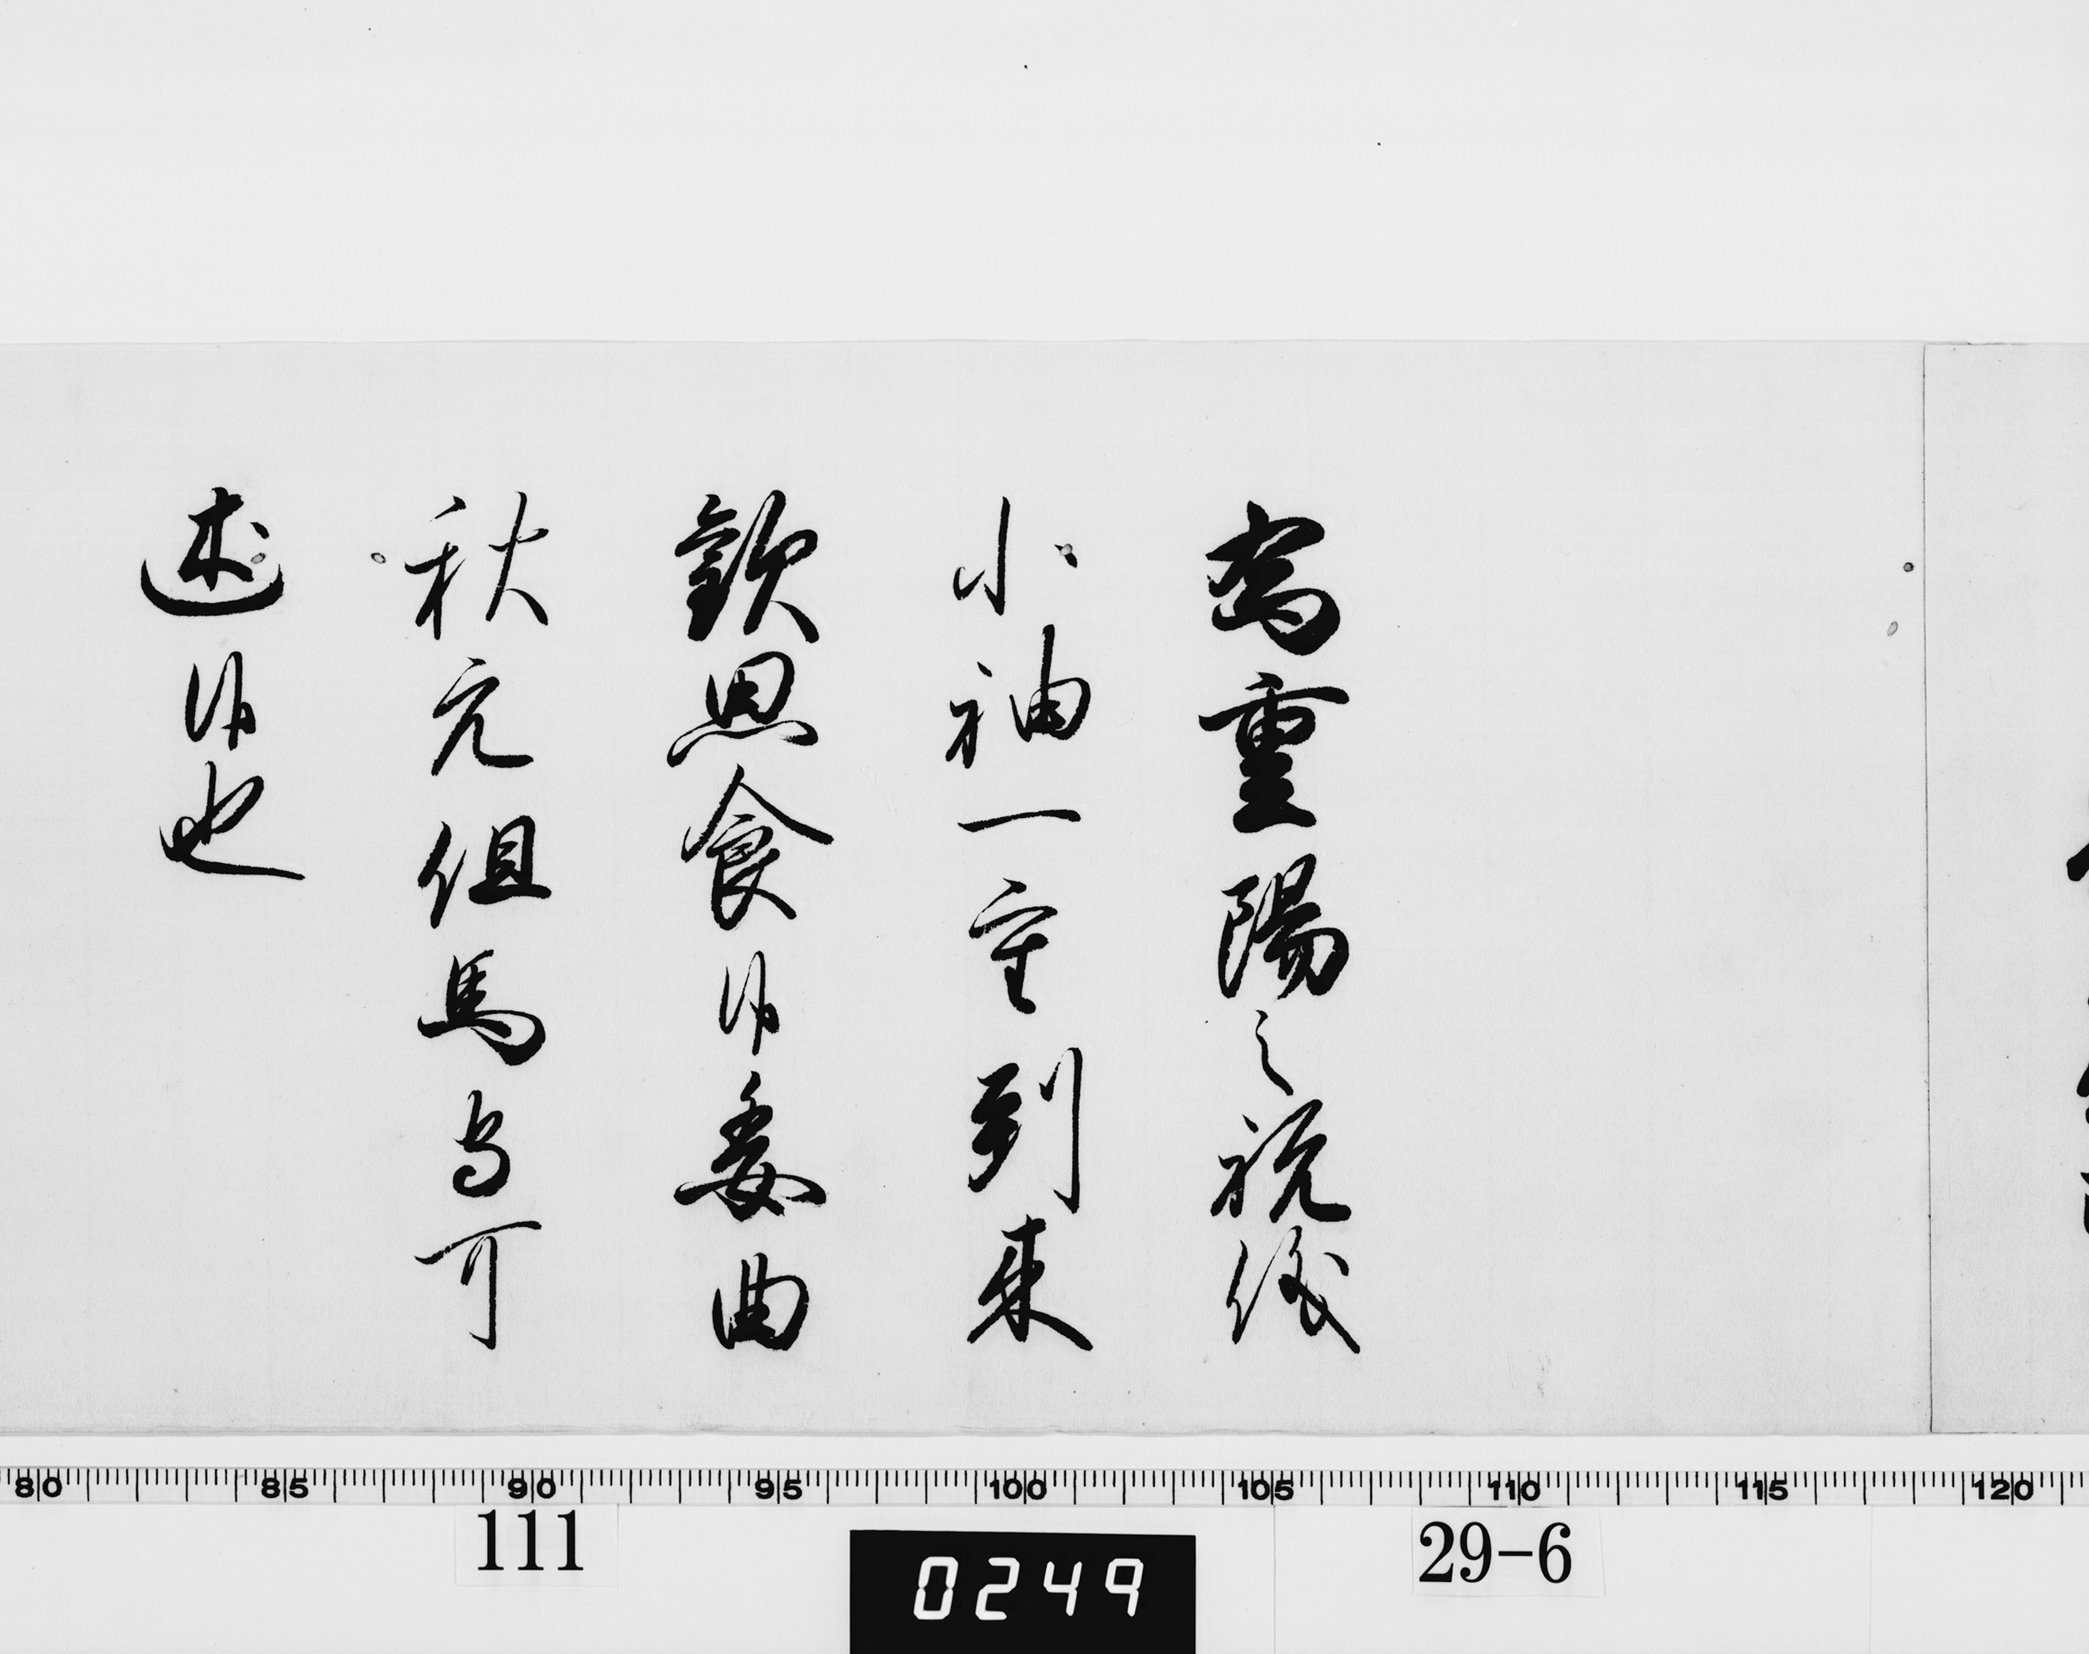 為重陽之祝儀
小袖一重到来
歓思食候委曲
秋元但馬守可
述候也
80 85 90 95 100 105 110 115 120
111
0249
29-6